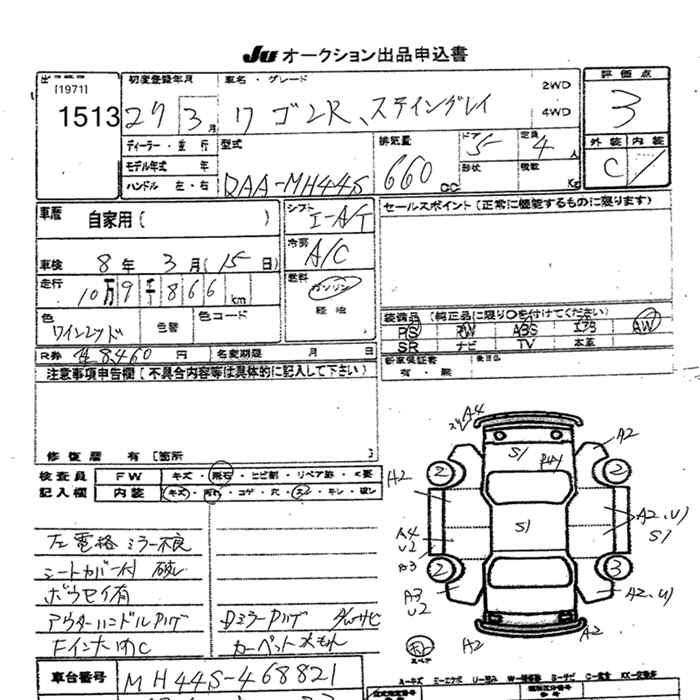 JU オークション出品申込書
[1971]
1513
初度登録年月
27 3月
車名・グレード
ワゴンR、スティングレイ
2WD
4WD
評価点
3
ディーラー・並行
モデル年式 年
ハンドル 左・右
型式
DAA-MH44S
排気量
660 CC
ドア 5
形状
定員 4 人
積載 Kg
外装 内装
C
車歴 自家用( )
シフト I-A/T
セールスポイント(正常に機能するものに限ります)
車検 8年 3月(15日)
冷房 A/C
走行 10万9千866 km
燃料 ガソリン
軽油
色 ワインレッド
色替
色コード
装備品(純正品に限り○を付けてください)
PS PW ABS エアB AW
SR ナビ TV 本革
R券 8460円
名変期限 月 日
新車保証書 後日品
有・無
注意事項申告欄(不具合内容等は具体的に記入して下さい)
修復歴 有[箇所 ]
検査員 FW キズ・飛石・ヒビ割・リペア跡・く要
記入欄 内装 キズ・汚れ・コゲ・穴・スレ・キレ・破レ
左電格ミラー不良
シートカバー付 破レ
ボウセイ有
アウターハンドルハゲ
Dミラーハゲ
下サビ
FインナめC
カーペット大もん
車台番号 MH44S-468821
A4
S1
A2
2
2
A2
A4
U2
S1
A2、U1
S1
B3
2
3
A3
U2
A2、U1
A2
A2
スペア
A-キズ U-凹み W-補修跡 S-サビ C-腐食 XX-交換済